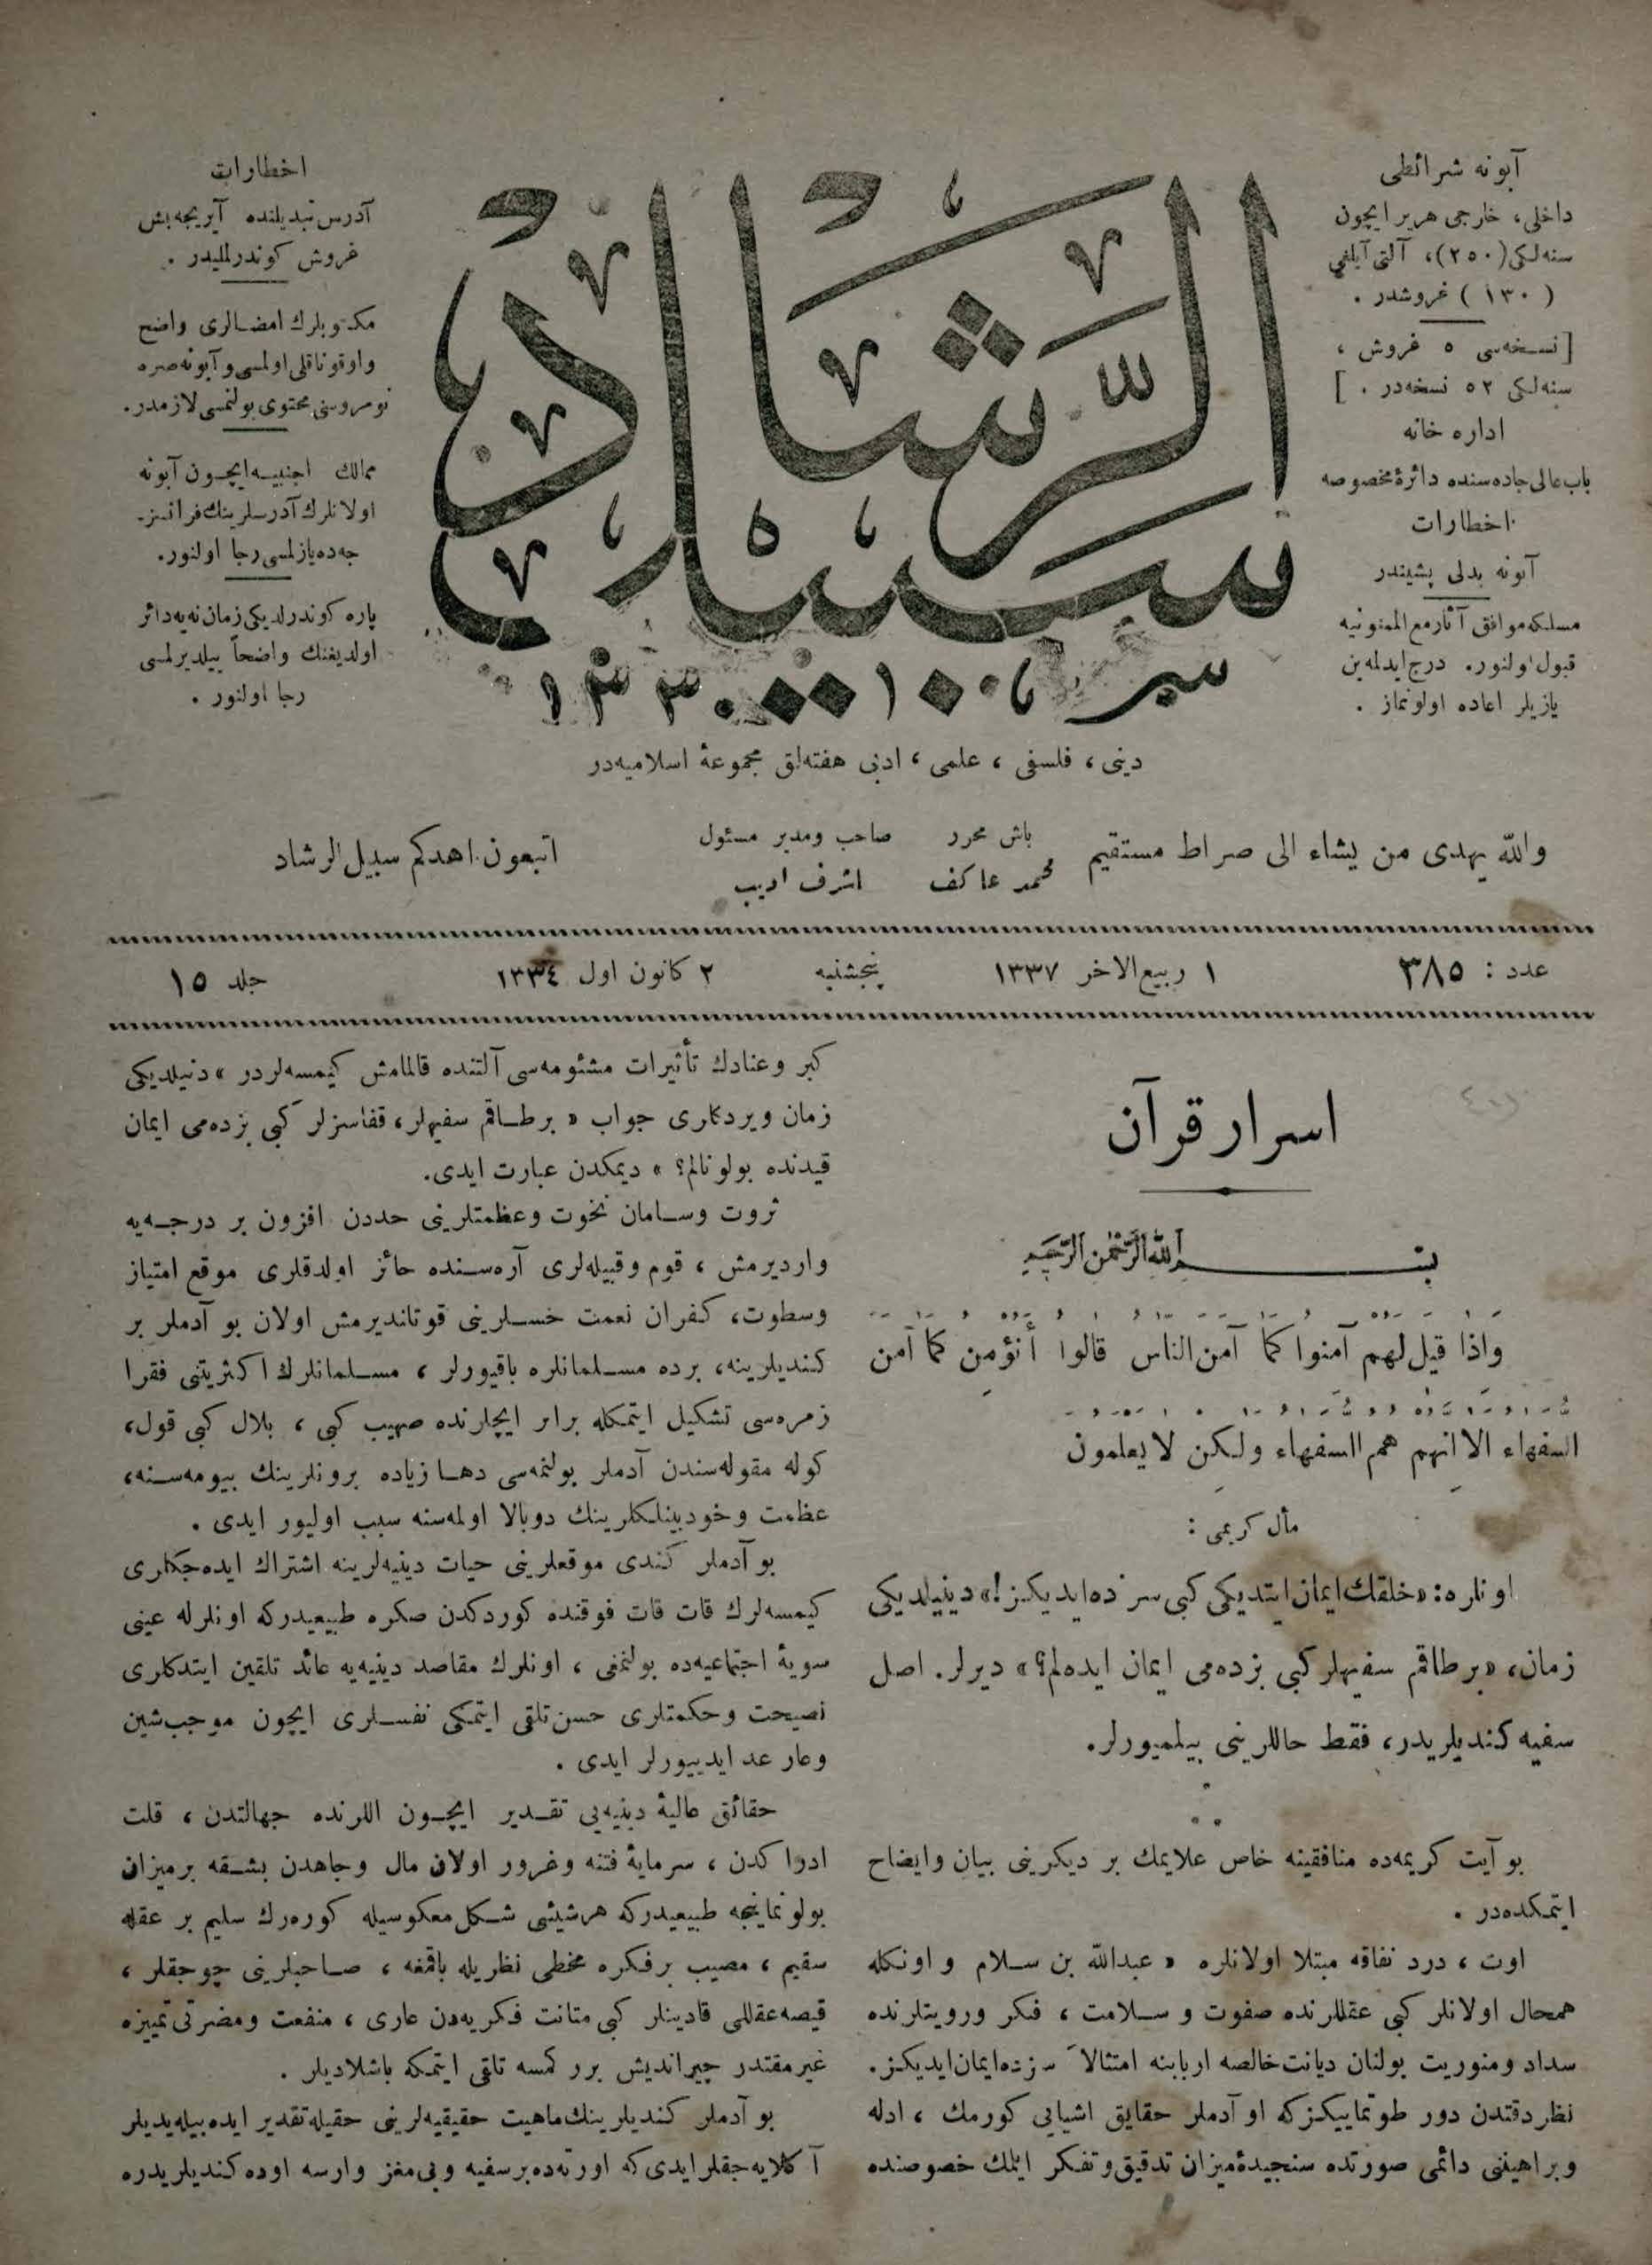 آبونه شرائطی
داخلی، خارجی هریر ایچون
سنه‌لکی (۲۵۰)، آلتی آیلغی
(۱۳۰) غروشدر .
[نسخه‌سی ۵ غروش ،
سنه‌لکی ۵۲ نسخه‌در . ]
اداره خانه
باب عالی جاده‌سنده دائرهٔ مخصوصه
اخطارات
آبونه بدلی پشیندر
مسلکه موافق آثار مع الممنونیه
قبول اولنور. درج ایدلمه‌ین
یازیلر اعاده اولونماز .
اخطارات
آدرس تبدیلنده آیریجه بش
غروش کوندرلملیدر .
مکتوبلرك امضالری واضح
واوقوناقلی اولمسی و آبونه صره
نومروسنی محتوی بولنمسی لازمدر.
ممالك اجنبیه ایچون آبونه
اولانلرك آدرسلرینك فرانسز-
جه‌ده یازلمسی رجا اولنور.
پاره کوندرلدیکی زمان نه‌یه دائر
اولدیغنك واضحاً بیلدیرلمسی
رجا اولنور .
سبیل الرشاد
دینی ، فلسفی ، علمی ، ادبی هفته‌لق مجموعهٔ اسلامیه‌در
والله یهدی من یشاء الی صراط مستقیم
باش محرر
محمد عاکف
صاحب ومدیر مسئول
اشرف ادیب
اتبعون اهدکم سبیل الرشاد
عدد : ۳۸۵
۱ ربیع الاخر ۱۳۳۷
پنجشنبه
۲ کانون اول ۱۳۳٤
جلد ۱۵
اسرار قرآن
بسم الله الرحمن الرحیم
واذا قیل لهم آمنوا کما آمن الناس قالوا أنؤمن کما آمن
السفهاء الا انهم هم السفهاء ولکن لا یعلمون
مأل کریمی :
اونلره: «خلقك ایمان ایتدیکی کبی سز ده ایدیکز!» دینیلدیکی
زمان، «بر طاقم سفیهلر کبی بزده‌می ایمان ایده‌لم؟» دیرلر. اصل
سفیه کندیلریدر، فقط حاللرینی بیلمیورلر.
بو آیت کریمه‌ده منافقینه خاص علایمك بر دیکرینی بیان وایضاح
ایتمکده‌در .
اوت ، درد نفاقه مبتلا اولانلره « عبدالله بن سلام و اونکله
همحال اولانلر کبی عقللرنده صفوت و سلامت ، فکر ورویتلرنده
سداد ومنوریت بولنان دیانت خالصه اربابنه امتثالاً سزده ایمان ایدیکز.
نظر دقتدن دور طوتمایکزکه او آدملر حقایق اشیایی کورمك ، ادله
وبراهینی دائمی صورتده سنجیدهٔ میزان تدقیق وتفکر ایلمك خصوصنده
کبر وعنادك تأثیرات مشئومه‌سی آلتنده قالمامش کیمسه‌لردر » دنیلدیکی
زمان ویردکلری جواب « بر طاقم سفیهلر، قفاسزلر کبی بزده‌می ایمان
قیدنده بولونالم؟ » دیمکدن عبارت ایدی.
ثروت وسامان نخوت وعظمتلرینی حددن افزون بر درجه‌یه
واردیرمش ، قوم وقبیله‌لری آره‌سنده حائز اولدقلری موقع امتیاز
وسطوت، کفران نعمت خسلرینی قوتاندیرمش اولان بو آدملر بر
کندیلرینه، برده مسلمانلره باقیورلر ، مسلمانلرك اکثریتنی فقرا
زمره‌سی تشکیل ایتمکله برابر ایچلرنده صهیب کبی ، بلال کبی قول،
کوله مقوله‌سندن آدملر بولنمه‌سی دها زیاده برونلرینك بیومه‌سنه،
عظمت وخودبینلکلرینك دوبالا اولمه‌سنه سبب اولیور ایدی .
بو آدملر کندی موقعلرینی حیات دینیه‌لرینه اشتراك ایده‌جکلری
کیمسه‌لرك قات قات فوقنده کوردکدن صکره طبیعیدرکه اونلرله عینی
سویهٔ اجتماعیه‌ده بولنمغی ، اونلرك مقاصد دینیه‌یه عائد تلقین ایتدکلری
نصیحت وحکمتلری حسن تلقی ایتمکی نفسلری ایچون موجب شین
وعار عد ایدییورلر ایدی .
حقائق عالیهٔ دینیه‌یی تقدیر ایچون اللرنده جهالتدن ، قلت
ادراکدن ، سرمایهٔ فتنه وغرور اولان مال وجاهدن بشقه برمیزان
بولونماینجه طبیعیدرکه هرشیئی شکل معکوسیله کوره‌رك سلیم بر عقله
سقیم ، مصیب برفکره مخطی نظریله باقمغه ، صاحبلرینی چوجقلر ،
قیصه عقللی قادینلر کبی متانت فکریه‌دن عاری ، منفعت ومضرتی تمییزه
غیر مقتدر برر کمسه تلقی ایتمکه باشلادیلر .
بو آدملر کندیلرینك ماهیت حقیقیه‌لرینی حقیله تقدیر ایده بیله‌یدیلر
آکلایه‌جقلر ایدی که اورته‌ده برسفیه وبی‌مغز وارسه اوده کندیلریدره